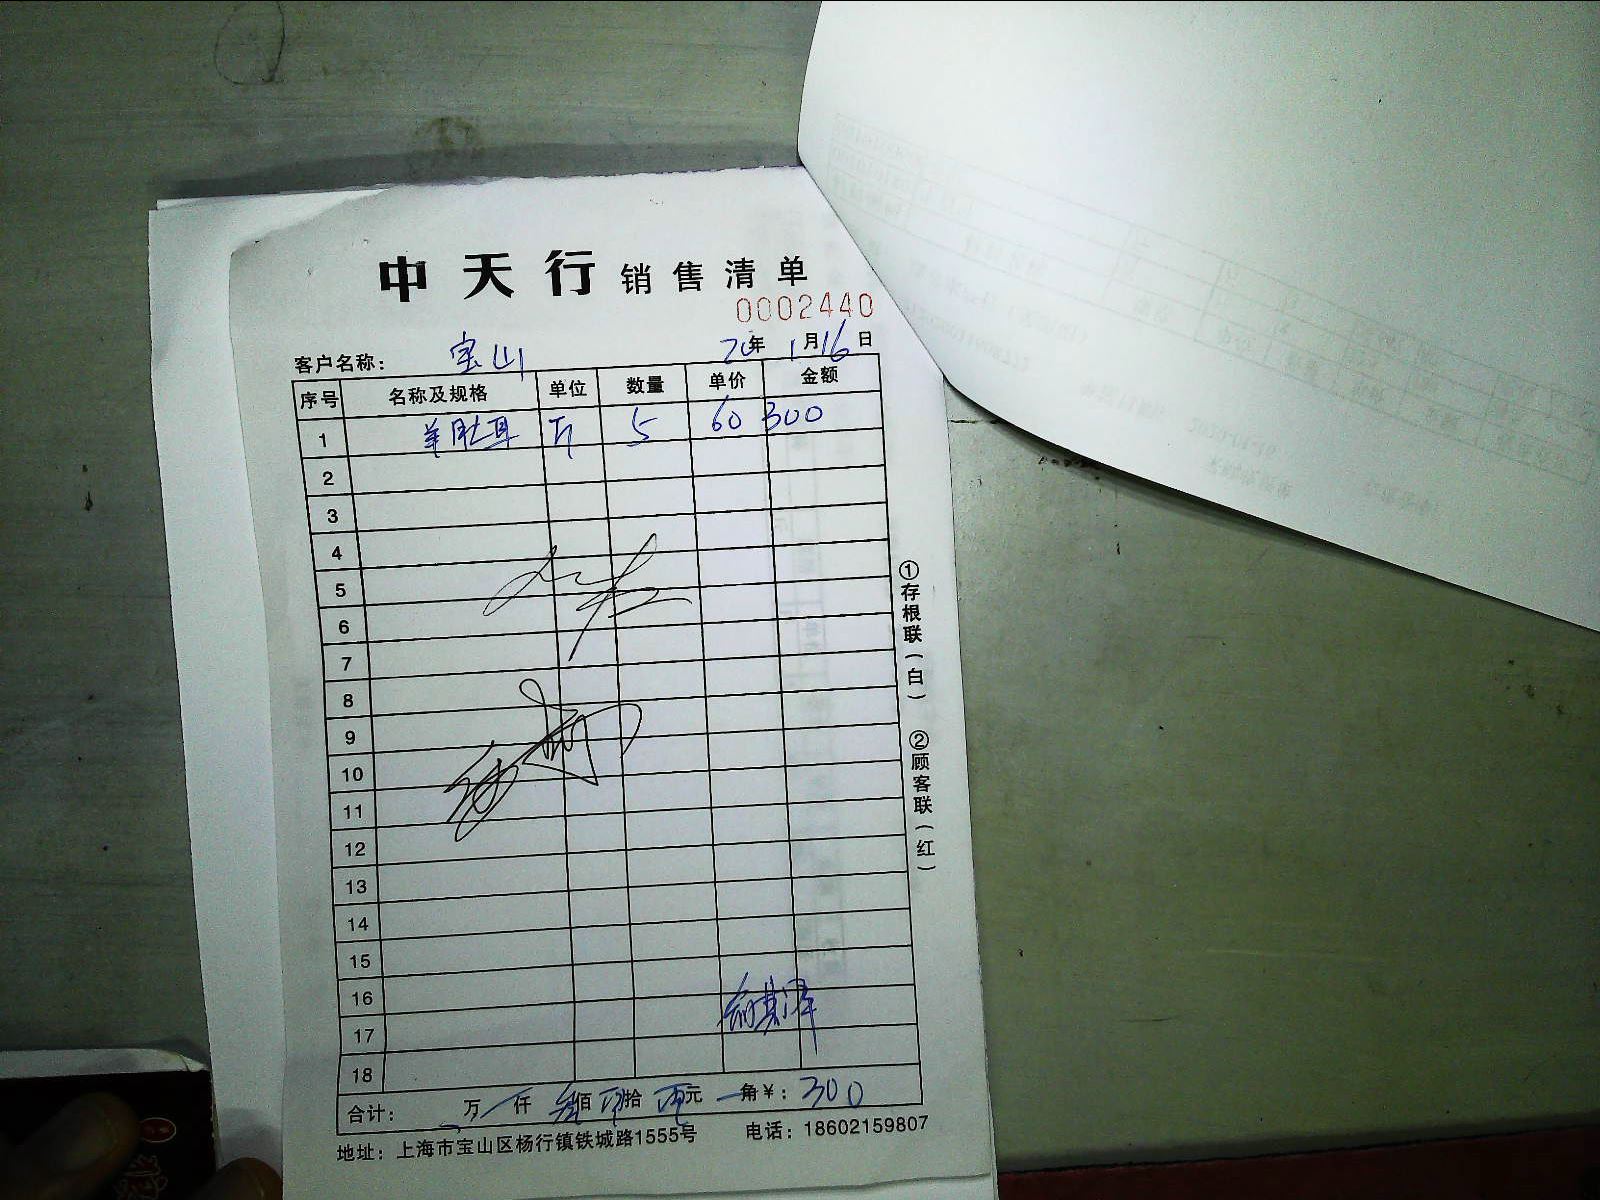 中天行 销售清单
0002440
客户名称： 宝山 20年 1月16日
序号 名称及规格 单位 数量 单价 金额
1 羊肚耳 斤 5 60 300
2
3
4
5
6
7
8
9
10
11
12
13
14
15
16
17
18
合计： 万 仟 叁佰 零拾 零元 角￥：300
地址：上海市宝山区杨行镇铁城路1555号 电话：18602159807
①存根联（白）
②顾客联（红）